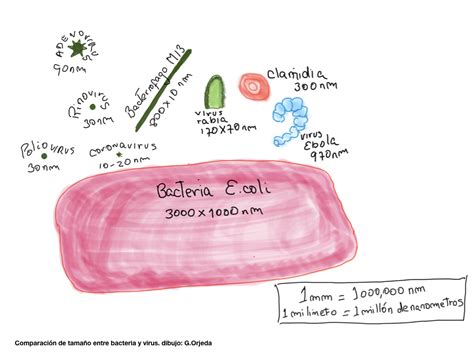 ADENOVIRUS
90nm
Rinovirus
30nm
Poliovirus
30nm
coronavirus
10-20nm
Bacteriofago M13
800x10nm
virus
rabia
170x70nm
Clamidia
300nm
virus
Ebola
970nm
Bacteria E.coli
3000x1000nm
1mm = 1000,000 nm
1 milimetro = 1 millón de nanometros
Comparación de tamaño entre bacteria y virus. dibujo: G.Orjeda